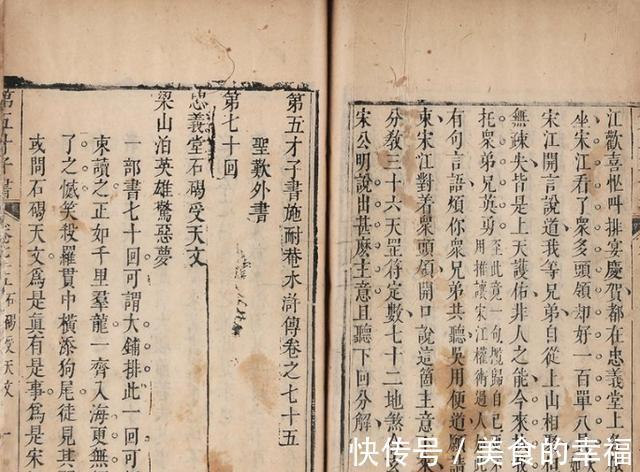 江歡喜叫排宴慶賀都在忠義堂
坐宋江看了衆多頭領却好一百單八
宋江開言說道我等兄弟自從上山相
無疎失皆是上天護佑非人之能今來
托衆弟兄英勇
至此竟一句攬歸自己
用推讓宋江權術過人
有句言語煩你衆兄弟共聽吳用便道願
東宋江對着衆頭領開口說這箇主意
分教三十六天罡符定數七十二地煞
宋公明說出甚麽主意且聽下回分解
第五才子書施耐菴水滸傳卷之七十五
聖歎外書
第七十回
忠義堂石碣受天文
梁山泊英雄驚惡夢
一部書七十回可謂大鋪排此一回可
東讀之正如千里羣龍一齊入海更無
了之憾笑殺羅貫中橫添狗尾徒見其
或問石碣天文爲是眞有是事爲是宋
第五才子書
石碣受天文
一
快传号 / 美食的幸福